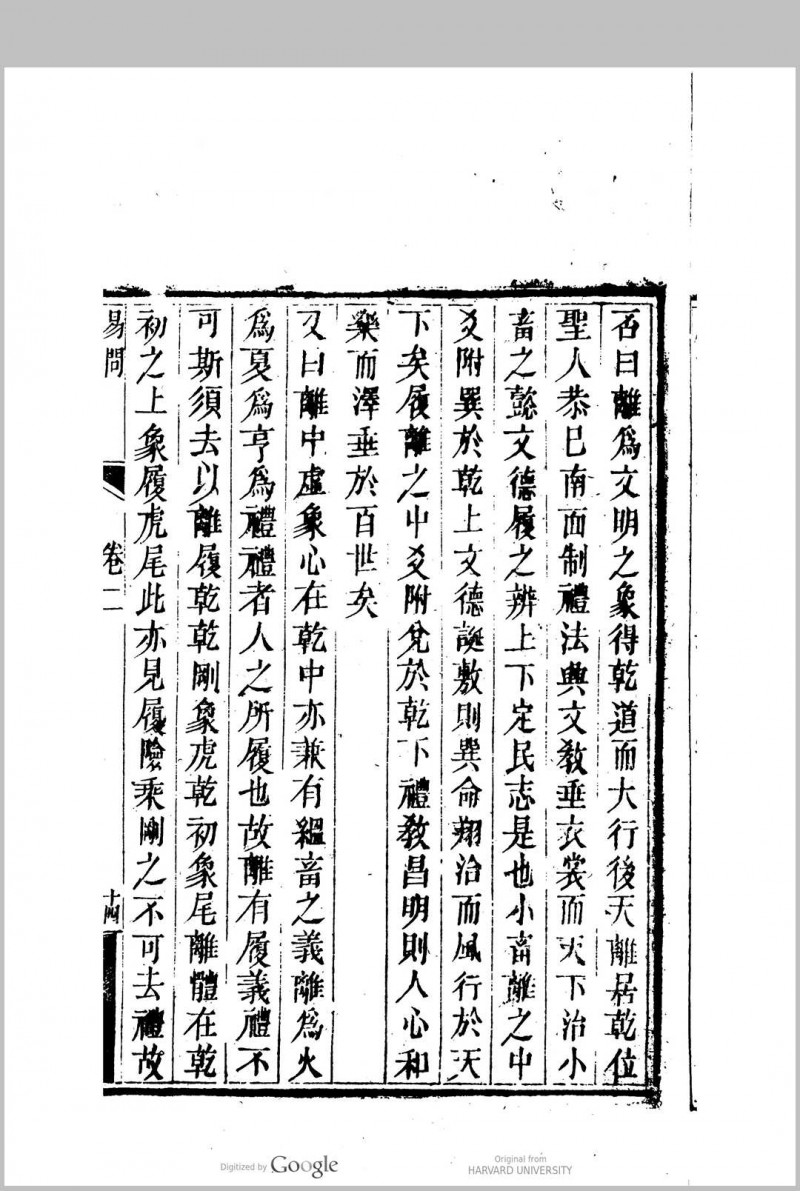 否曰離爲文明之象得乾道而大行後天離居乾位
聖人恭已南面制禮法興文敎垂衣裳而天下治小
畜之懿文德履之辨上下定民志是也小畜離之中
爻附巽於乾上文德誕敷則巽命翔洽而風行於天
下矣履離之中爻附兌於乾下禮敎昌明則人心和
樂而澤垂於百世矣
又曰離中虛象心在乾中亦兼有縕畜之義離爲火
爲夏爲亨爲禮禮者人之所履也故離有履義禮不
可斯須去以離履乾乾剛象虎乾初象尾離體在乾
初之上象履虎尾此亦見履險乘剛之不可去禮故
易問
卷二
十四
Digitized by Google
Original from
HARVARD UNIVERSITY